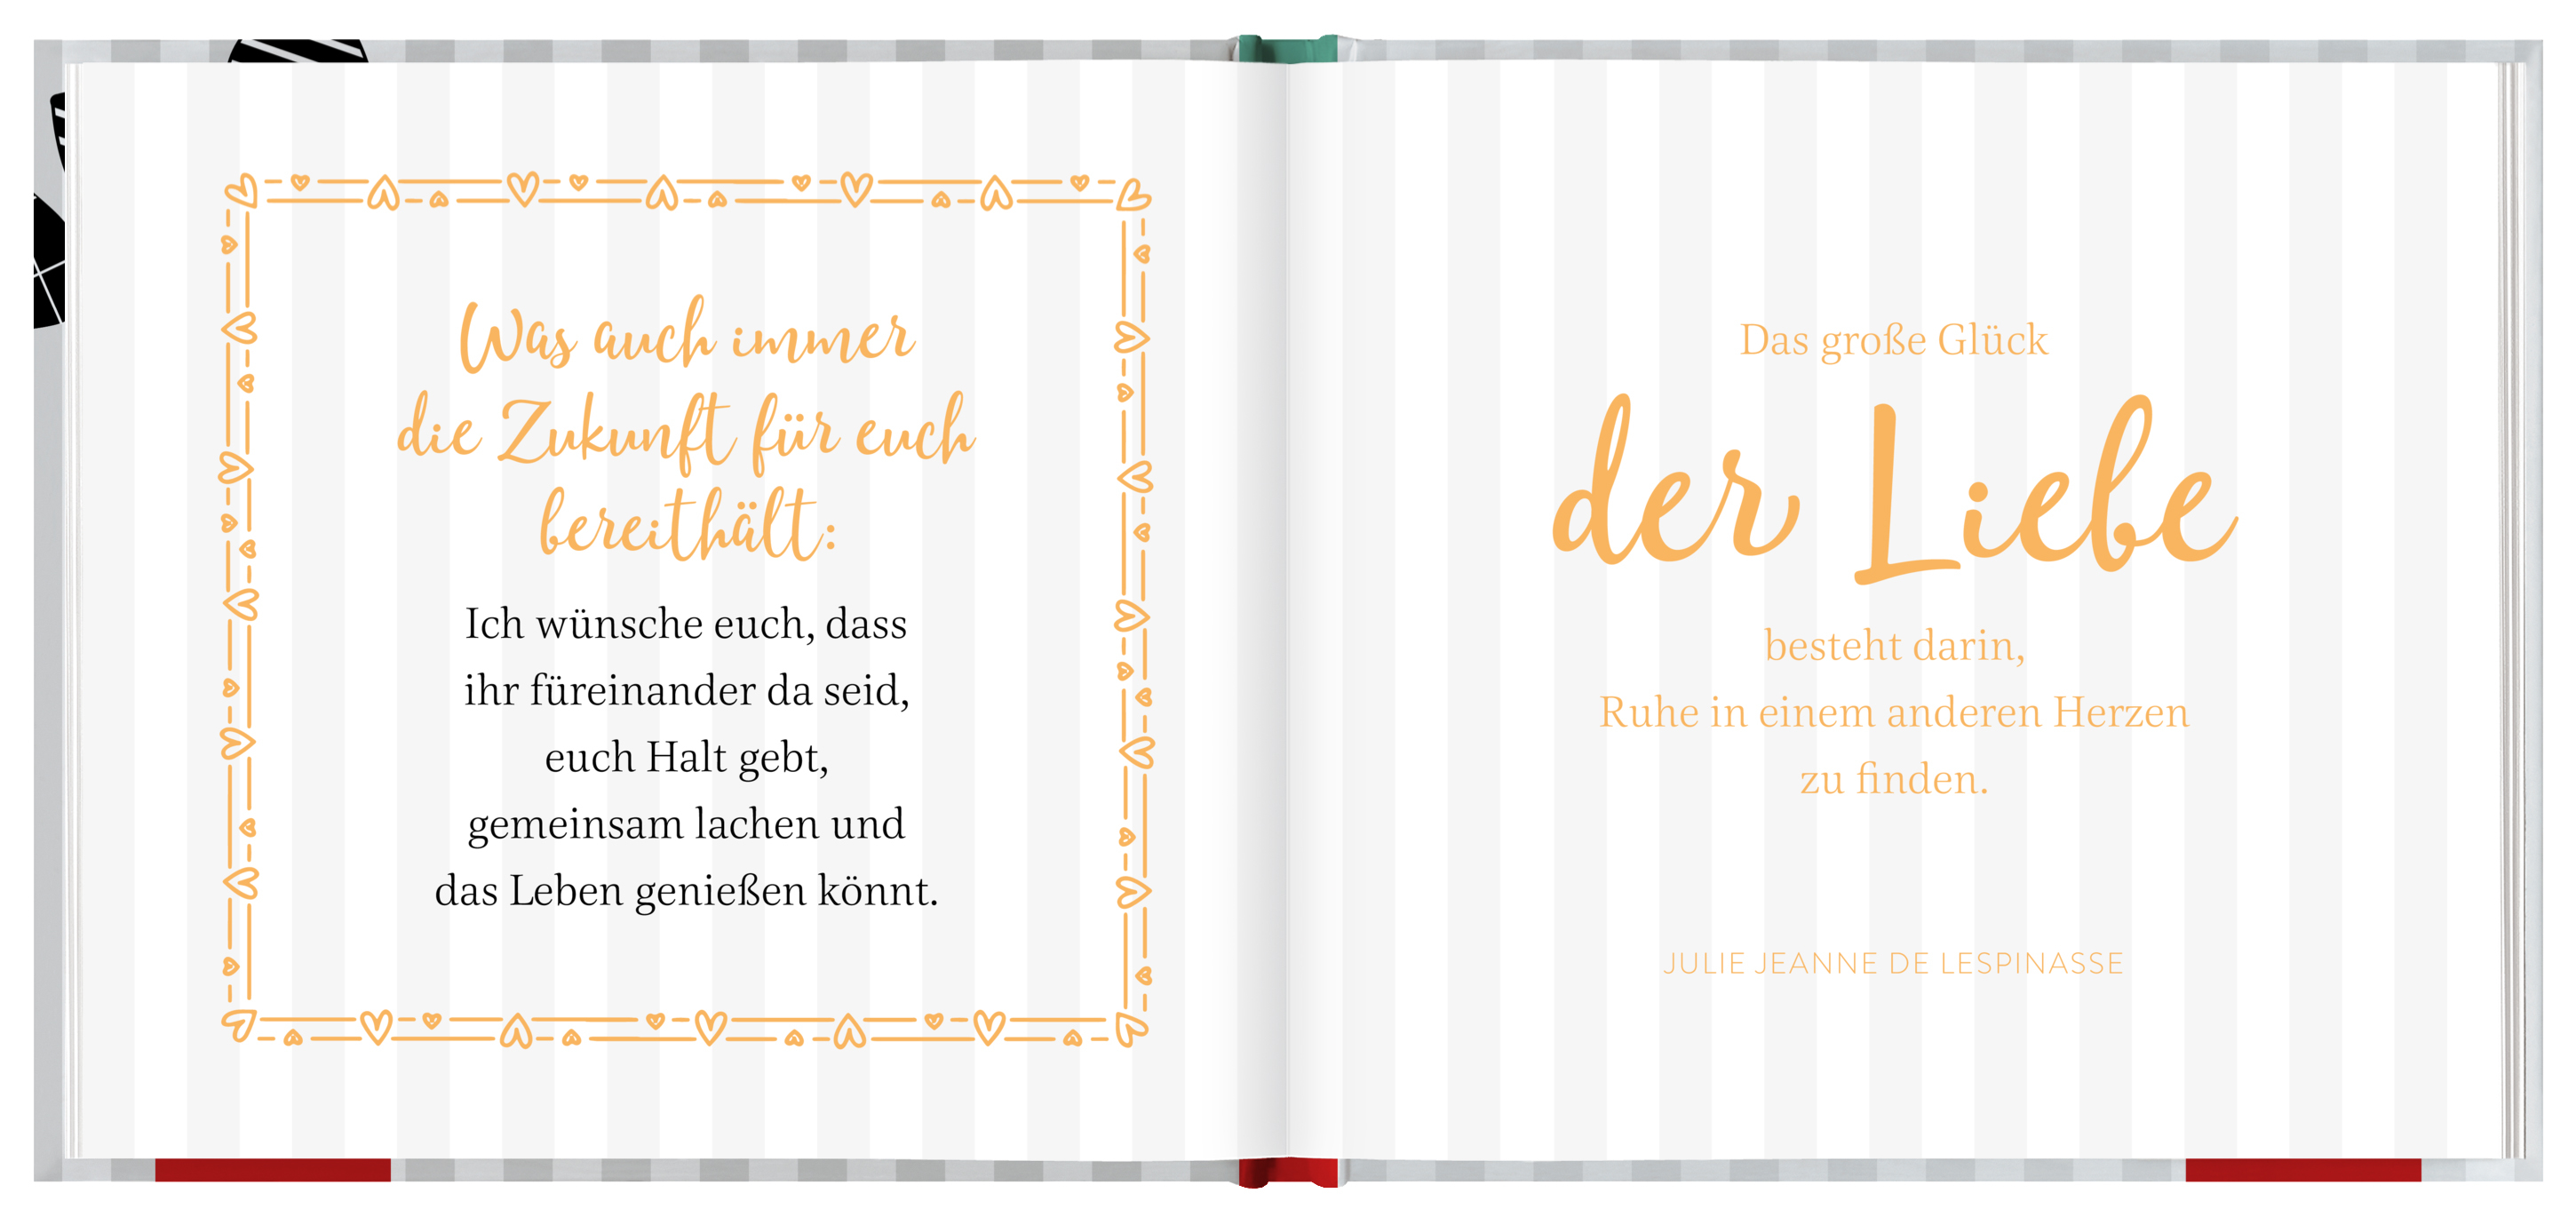 Was auch immer
die Zukunft für euch
bereithält:
Ich wünsche euch, dass
ihr füreinander da seid,
euch Halt gebt,
gemeinsam lachen und
das Leben genießen könnt.
Das große Glück
der Liebe
besteht darin,
Ruhe in einem anderen Herzen
zu finden.
JULIE JEANNE DE LESPINASSE